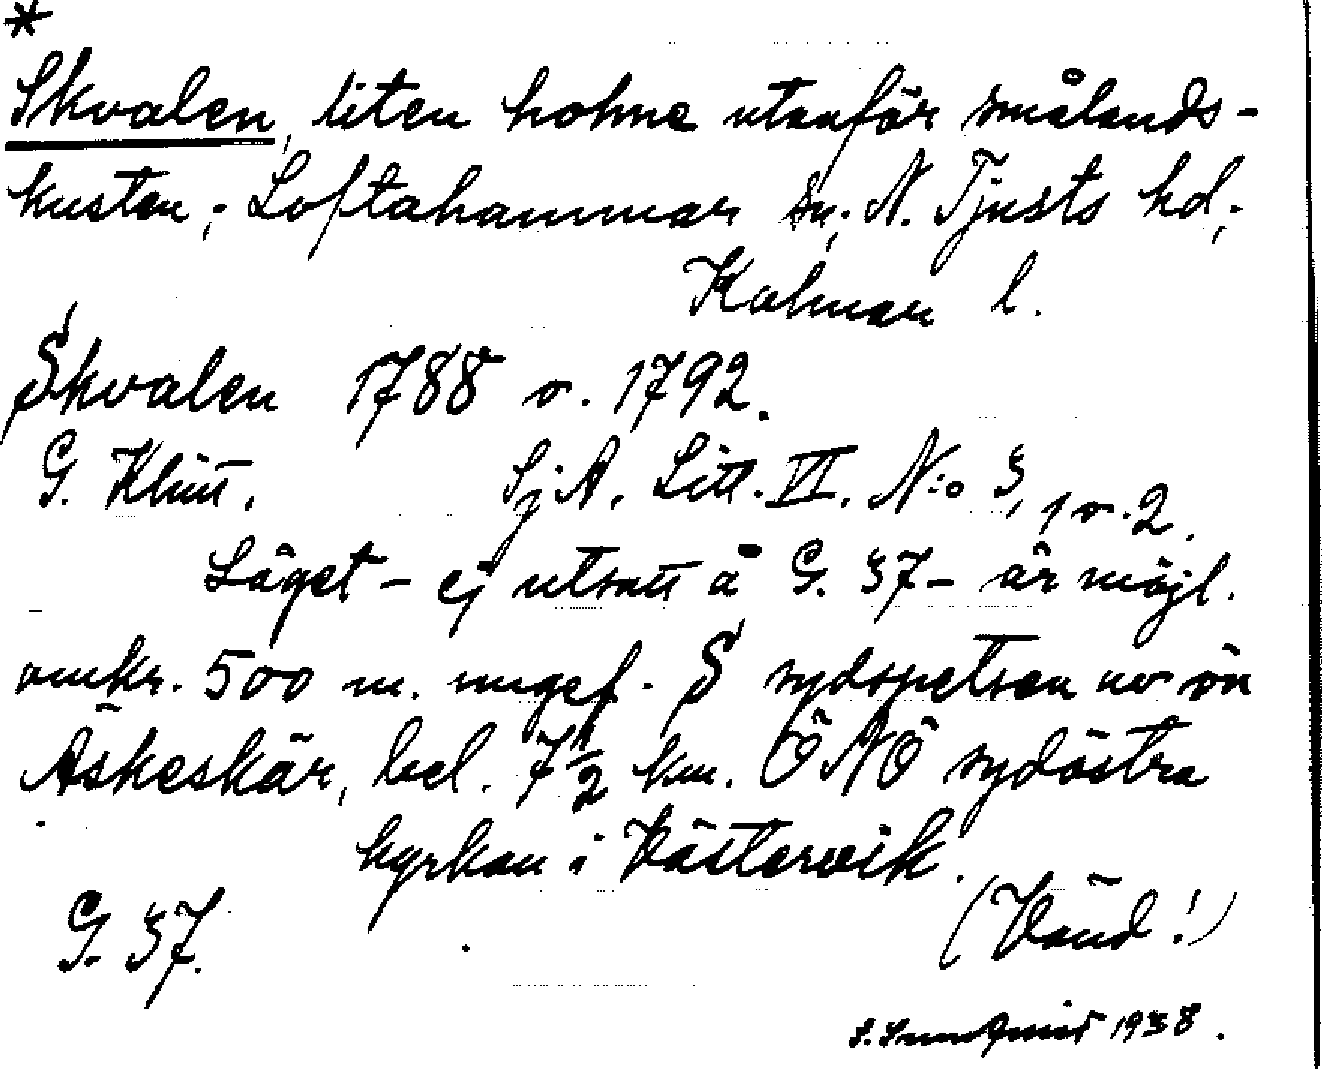 *
Skvalen, liten holme utanför smålands-
kusten; Loftahammar sn, N. Tjusts hd,
Kalmar l.
Skvalen 1788 o. 1792.
G. Klint. SjA. Litt. VI. N:o 3, 1 o. 2.
Läget – ej utsatt å G. 37 – är möjl.
omkr. 500 m. ungef. S sydspetsen av ön
Äskeskär, bel. 7 1/2 km. ÖNÖ sydöstra
kyrkan i Västervik.
G. 37. (Vänd!)
S. Sundqvist 1938.